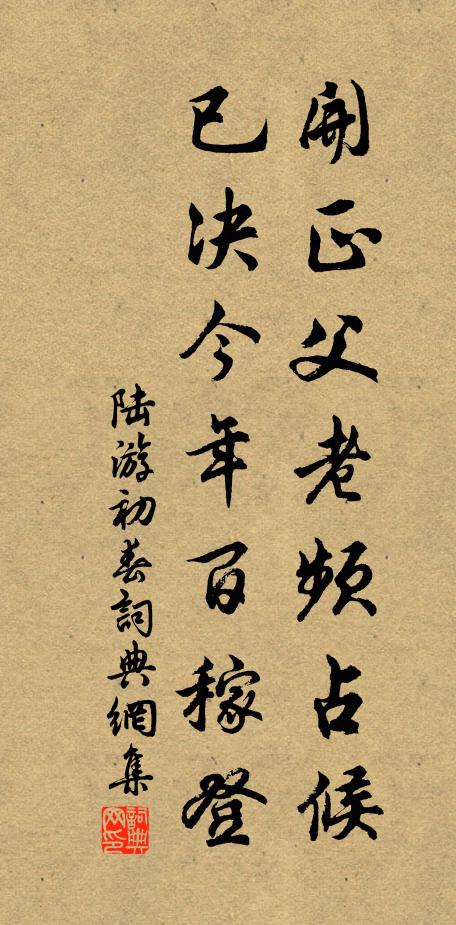 開正父老頻占候
已決今年百稼登
陸游初春詞典網集
詞典網印